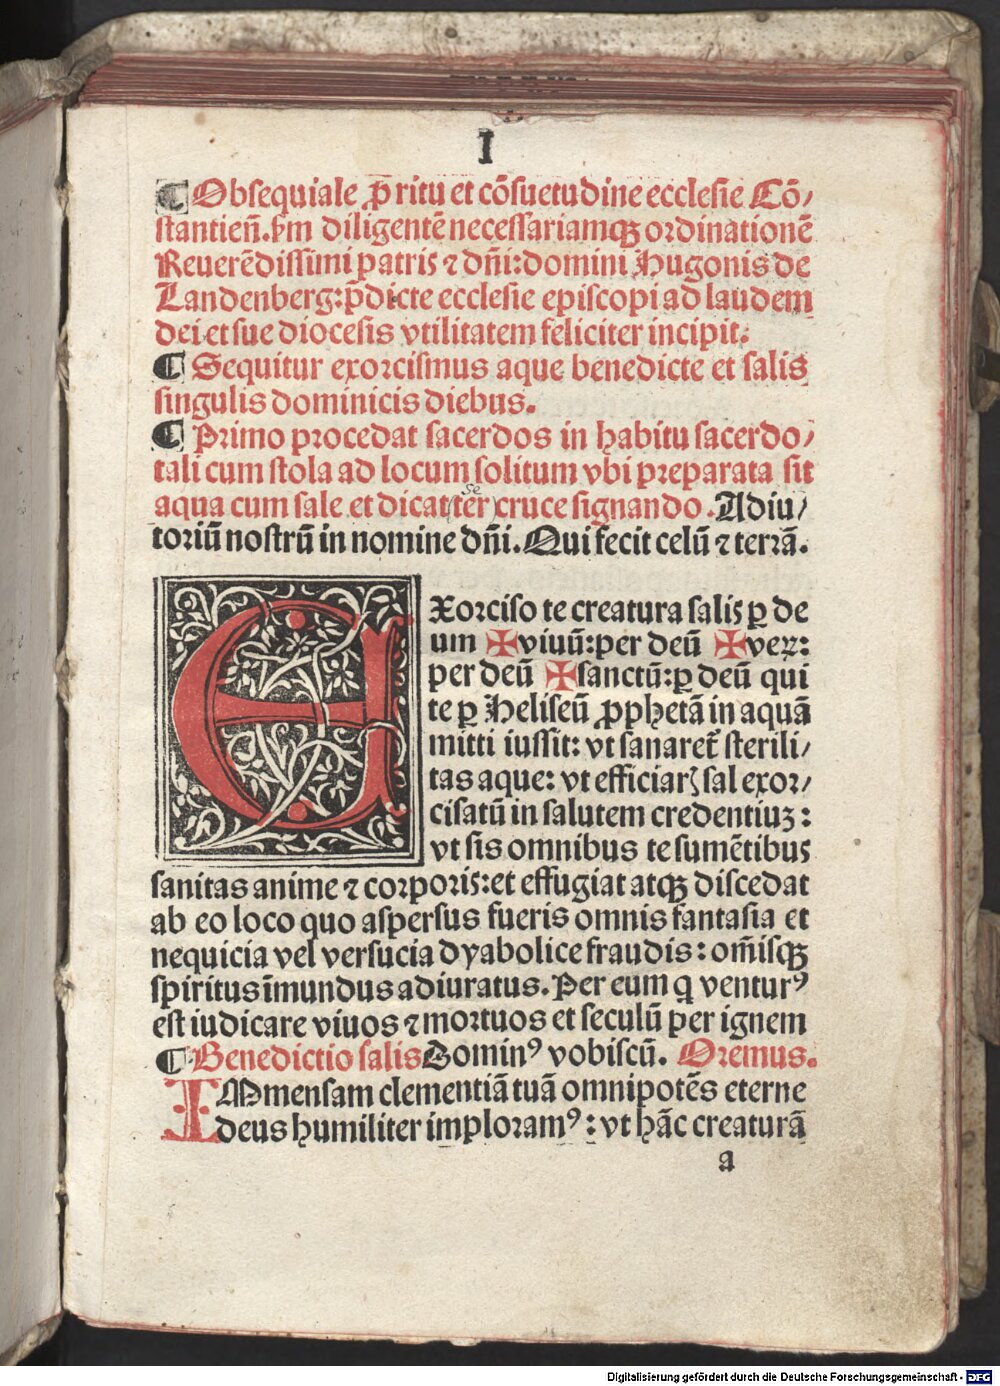 I
¶ Obsequiale ꝓ ritu et cōsuetudine ecclesie Cō⸗
stantien̄. ẜm diligentē necessariamqꝫ ordinationē
Reuerēdissimi patris ⁊ dn̄i: domini Hugonis de
Landenberg: p̄dicte ecclesie episcopi ad laudem
dei et sue diocesis vtilitatem feliciter incipit.
¶ Sequitur exorcismus aque benedicte et salis
singulis dominicis diebus.
¶ Primo procedat sacerdos in habitu sacerdo⸗
tali cum stola ad locum solitum vbi preparata sit
se
aqua cum sale et dicat (ter) cruce signando. Adiu⸗
toriū nostrū in nomine dn̄i. Qui fecit celū ⁊ terrā.
EXorciso te creatura salis ꝑ de
um ✠ viuū: per deū ✠ veꝝ:
per deū ✠ sanctū: ꝑ deū qui
te ꝑ Heliseū ꝓphetā in aquā
mitti iussit: vt sanaret᷑ sterili⸗
tas aque: vt efficiar̄ sal exor⸗
cisatū in salutem credentiuꝫ:
vt sis omnibus te sumētibus
sanitas anime ⁊ corporis: et effugiat atqꝫ discedat
ab eo loco quo aspersus fueris omnis fantasia et
nequicia vel versucia dyabolice fraudis: om̄isqꝫ
spiritus īmundus adiuratus. Per eum q̄ ventur⁹
est iudicare viuos ⁊ mortuos et seculū per ignem
¶ Benedictio salis Domin⁹ vobiscū. Oremus.
IMmensam clementiā tuā omnipotēs eterne
deus humiliter imploram⁹: vt hāc creaturā
a
Digitalisierung gefördert durch die Deutsche Forschungsgemeinschaft - DFG